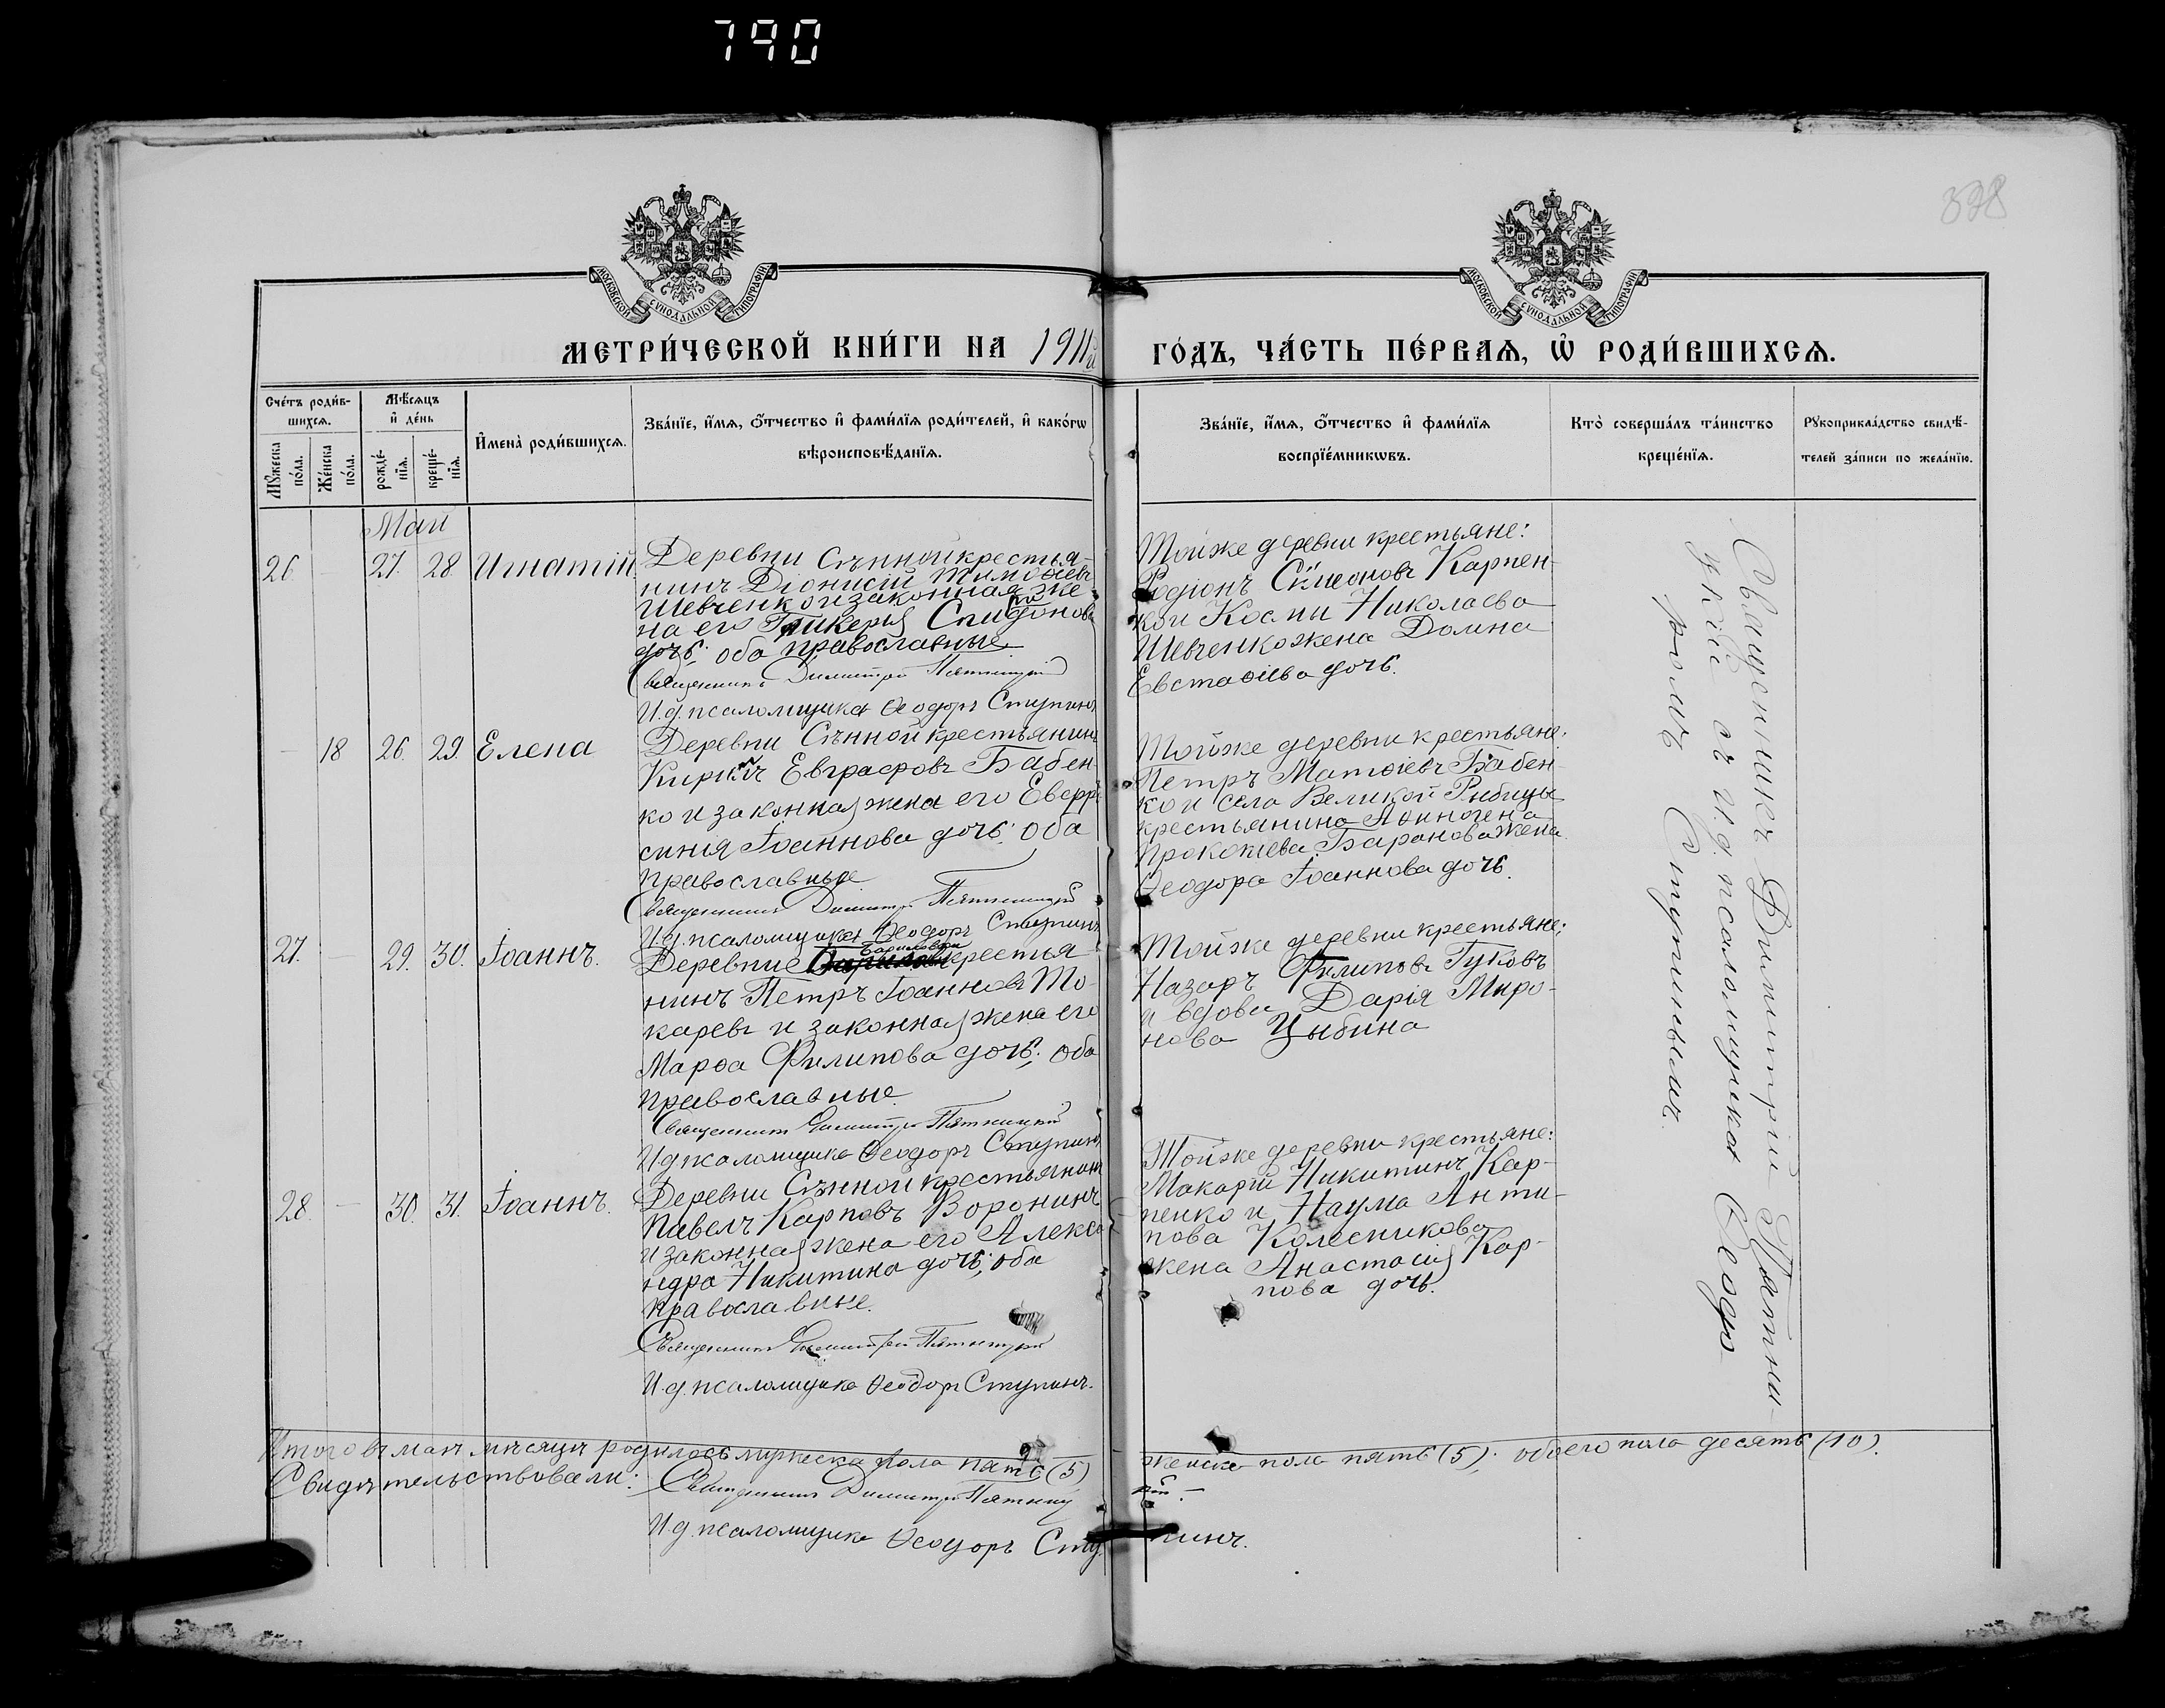 790
528
МОСКОВСКОЙ СУНОДАЛЬНОЙ ТИПОГРАФІИ
МОСКОВСКОЙ СУНОДАЛЬНОЙ ТИПОГРАФІИ
МЕТРИ́ЧЕСКОЙ КНИ́ГИ НА 1911й ГО́ДЪ, ЧА́СТЬ ПЕ́РВАѦ, Ѡ҆ РОДИ́ВШИХСѦ.
Сче́тъ роди́в-
шихсѧ.
Мꙋжеска по́ла.
Же́нска по́ла.
Мѣ́сѧцъ
и҆ де́нь
рожде́-
нїѧ.
креще́-
нїѧ.
И҆мена̀ роди́вшихсѧ.
Зва́нїе, и҆́мѧ, ѻ҆́тчество и҆ фами́лїѧ роди́телей, и҆ како́гѡ
вѣроисповѣ́данїѧ.
Зва́нїе, и҆́мѧ, ѻ҆́тчество и҆ фами́лїѧ
воспрїе́мникѡвъ.
Кто̀ соверша́лъ та́инство
креще́нїѧ.
Рꙋкоприкла́дство свидѣ́-
телей за́писи по жела́нїю.
Май
26 – 27. 28. Игнатій.
Деревни Сѣнной крестья-
нинъ Діонисій Тимоѳіевъ
Шевченко и законная же-
на его Гликерія Спиридонова
дочь; оба православные
Священникъ Димитрій Пятницкій
И.д. псаломщика Ѳеодоръ Ступинъ
Тойже деревни крестьяне:
Родіонъ Симеоновъ Карпен-
ко и Космы Николаева
Шевченко жена Домна
Евстаѳіева дочь.
– 18 26. 29. Елена
Деревни Сѣнной крестьянинъ
Кирикъ Евграфовъ Бабен-
ко и законная жена его Евфро-
синія Іоаннова дочь; оба
православные
Священникъ Димитрій Пятницкій
И.д. псаломщика Ѳеодоръ Ступинъ
Тойже деревни крестьяне:
Петръ Матѳіевъ Бабен-
ко и села Великой Рыбицы
крестьянина Аѳиногена
Прокопіева Баранова жена
Ѳеодора Іоаннова дочь.
27. – 29. 30. Іоаннъ.
Бариловки
Деревние крестья-
нинъ Петръ Іоанновъ То-
каревъ и законная жена его
Марѳа Филипова дочь; оба
православные
Священникъ Димитрій Пятницкій
И.д. псаломщика Ѳеодоръ Ступинъ
Тойже деревни крестьяне:
Назаръ Филиповъ Гуковъ
и вдова Дарія Миро-
нова Цыбина
28. – 30. 31. Іоаннъ.
Деревни Сѣнной крестьянинъ
Павелъ Карповъ Воронинъ
и законная жена его Алекса
ндра Никитина дочь; оба
православные.
Священникъ Димитрій Пятницкій
И.д. псаломщика Ѳеодоръ Ступинъ.
Тойже деревни крестьяне:
Макарій Никитинъ Кар-
пенко и Наума Анти-
пова Колесникова
жена Анастасія Кар-
пова дочь.
Священникъ Димитрій Пятни-
цкій съ И.д. псаломщика Ѳеодо-
ромъ Ступинымъ.
Итого въ маѣ мѣсяцѣ родилось мужеска пола пять (5) женска пола пять (5); обоего пола десять (10).
Свидѣтельствовали: Священникъ Димитрій Пятницкій
И.д. псаломщика Ѳеодоръ Ступинъ.